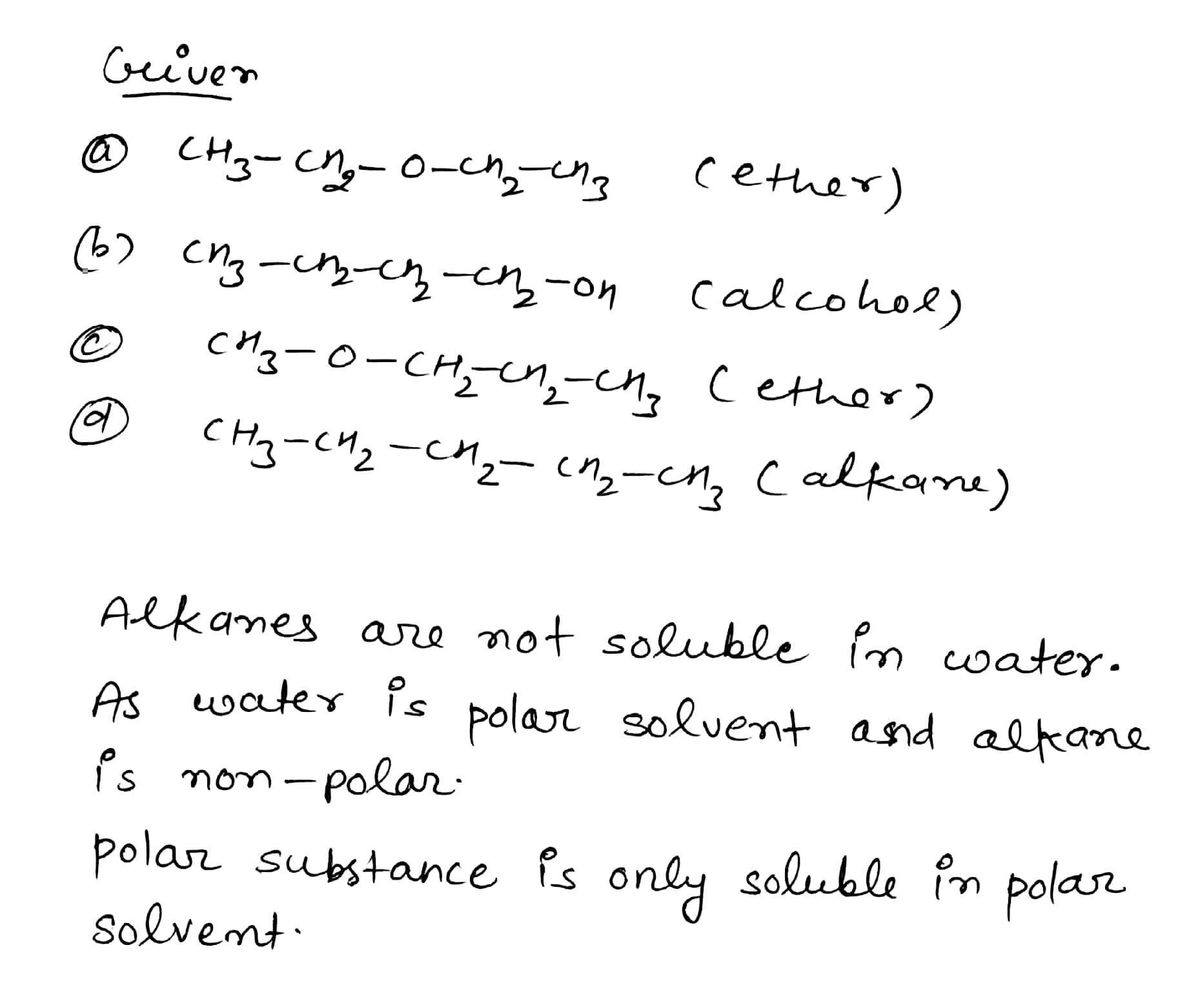 Given
(a) CH3-CH2-O-CH2-CH3 (ether)
(b) CH3-CH2-CH2-CH2-OH (alcohol)
(c) CH3-O-CH2-CH2-CH3 (ether)
(d) CH3-CH2-CH2-CH2-CH3 (alkane)
Alkanes are not soluble in water.
As water is polar solvent and alkane
is non-polar.
polar substance is only soluble in polar
solvent.